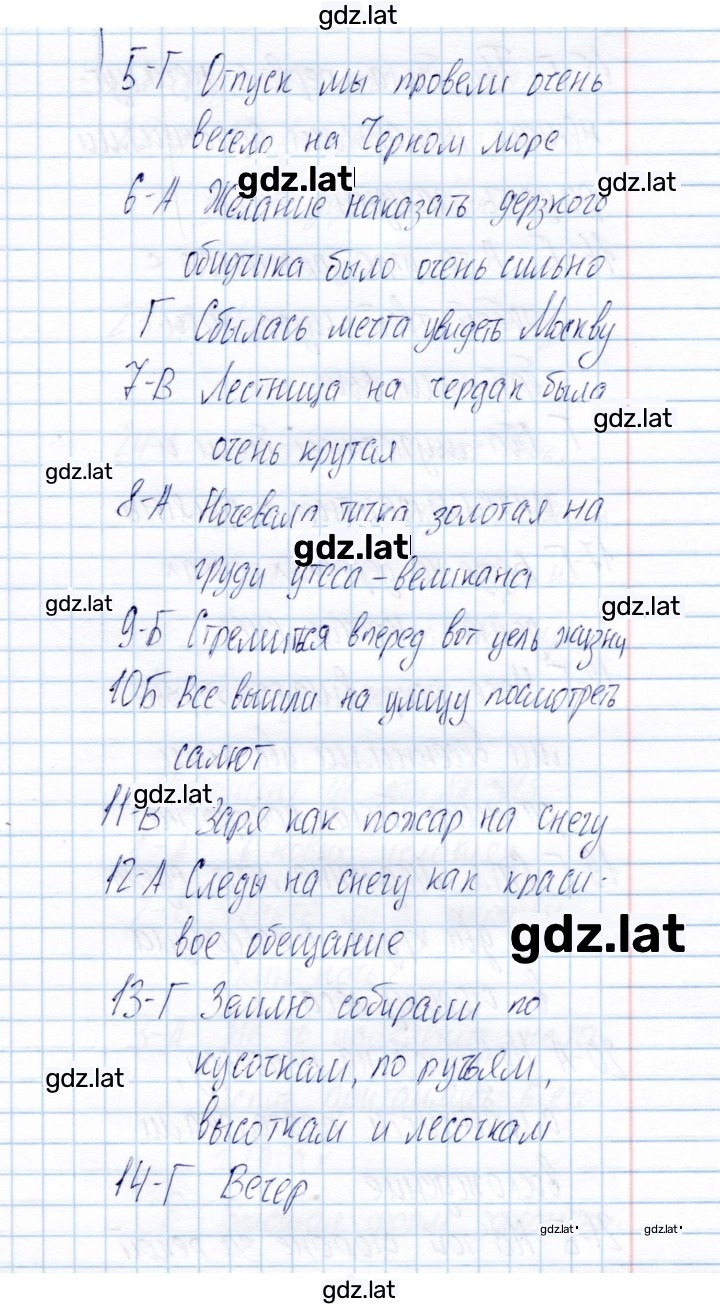 gdz.lat
5-Г Отпуск мы провели очень
весело на Черном море
gdz.lat gdz.lat
6-А Желание наказать дерзкого
обидчика было очень сильно
Г Сбылась мечта увидеть Москву
7-В Лестница на чердак была
gdz.lat
очень крутая
gdz.lat
8-А Ночевала тучка золотая на
gdz.lat
груди утеса-великана
gdz.lat gdz.lat
9-Б Стремиться вперед вот цель жизни
10Б Все вышли на улицу посмотреть
салют
gdz.lat
11-В Заря как пожар на снегу
12-А Следы на снегу как краси-
вое обещание
gdz.lat
13-Г Землю собирали по
кусочкам, по ручьям,
gdz.lat
высоткам и лесочкам
14-Г Вечер
gdz.lat gdz.lat
gdz.lat